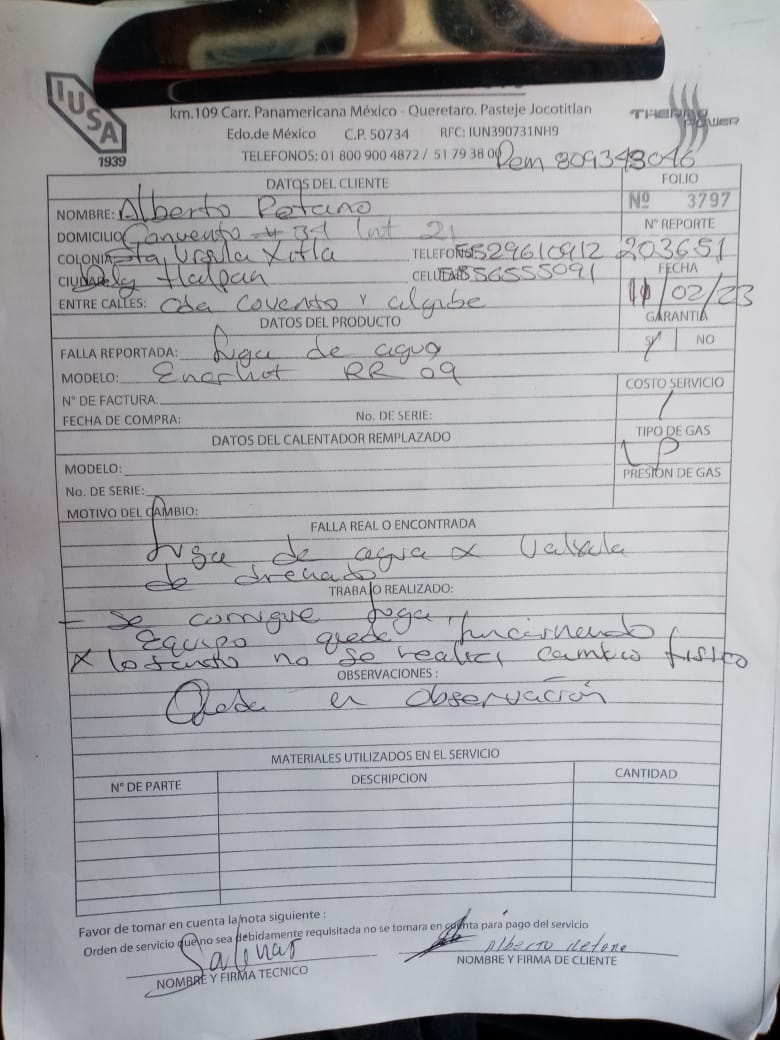 IUSA
1939
THERMO POWER
km.109 Carr. Panamericana México - Queretaro. Pasteje Jocotitlan
Edo.de México C.P. 50734 RFC: IUN390731NH9
TELEFONOS: 01 800 900 4872 / 51 79 38 00
Rem 809348046
DATOS DEL CLIENTE
FOLIO
NOMBRE: Alberto
Nº 3797
DOMICILIO Convento # 34 Int 21
Nº REPORTE
COLONIA Sta Ursula Xitla TELEFONO 5529610912 203651
CIUDAD Tlalpan CELULAR 556555091
FECHA
ENTRE CALLES: Covento y aljibe
11/02/23
DATOS DEL PRODUCTO
GARANTIA
FALLA REPORTADA: fuga de agua
SI NO
MODELO: Enerhot RR 09
N° DE FACTURA:
COSTO SERVICIO
FECHA DE COMPRA: No. DE SERIE:
/
DATOS DEL CALENTADOR REMPLAZADO
TIPO DE GAS
MODELO:
LP
No. DE SERIE:
PRESION DE GAS
MOTIVO DEL CAMBIO:
FALLA REAL O ENCONTRADA
fuga de agua x Valvula
de drenado
TRABAJO REALIZADO:
- Se corrigue fuga,
Equipo queda funcionando
x lo tanto no se realiza cambio fisico
OBSERVACIONES :
Queda en Observación
MATERIALES UTILIZADOS EN EL SERVICIO
N° DE PARTE DESCRIPCION CANTIDAD
Favor de tomar en cuenta la nota siguiente :
Orden de servicio que no sea debidamente requisitada no se tomara en cuenta para pago del servicio
Salinas
Alberto
NOMBRE Y FIRMA TECNICO
NOMBRE Y FIRMA DE CLIENTE